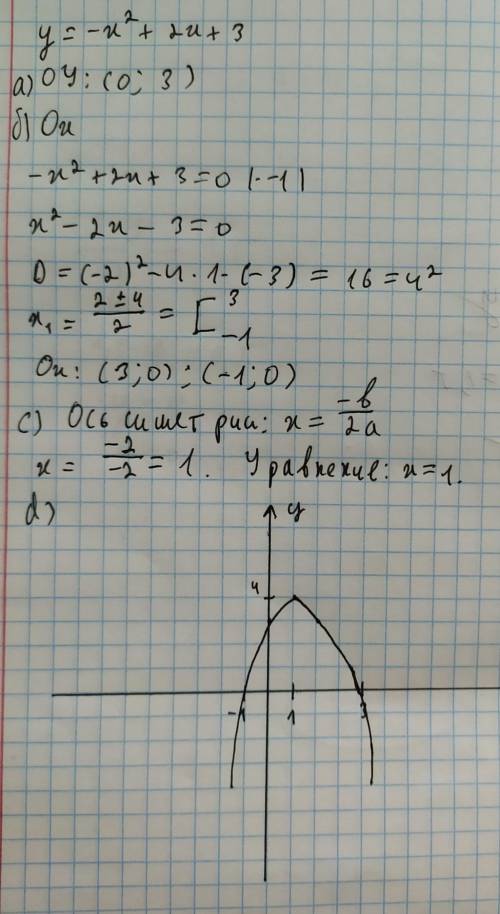 y = -x² + 2x + 3
a) OY: (0; 3)
б) Ox
-x² + 2x + 3 = 0 |·-1|
x² - 2x - 3 = 0
D = (-2)² - 4 · 1 · (-3) = 16 = 4²
x₁ = (2 ± 4)/2 = [ 3 -1
Ox: (3; 0) ; (-1; 0)
c) Ось симетрии: x = -b/2a
x = -2/-2 = 1. Уравнение: x = 1.
d)
y
4
-1 1 3